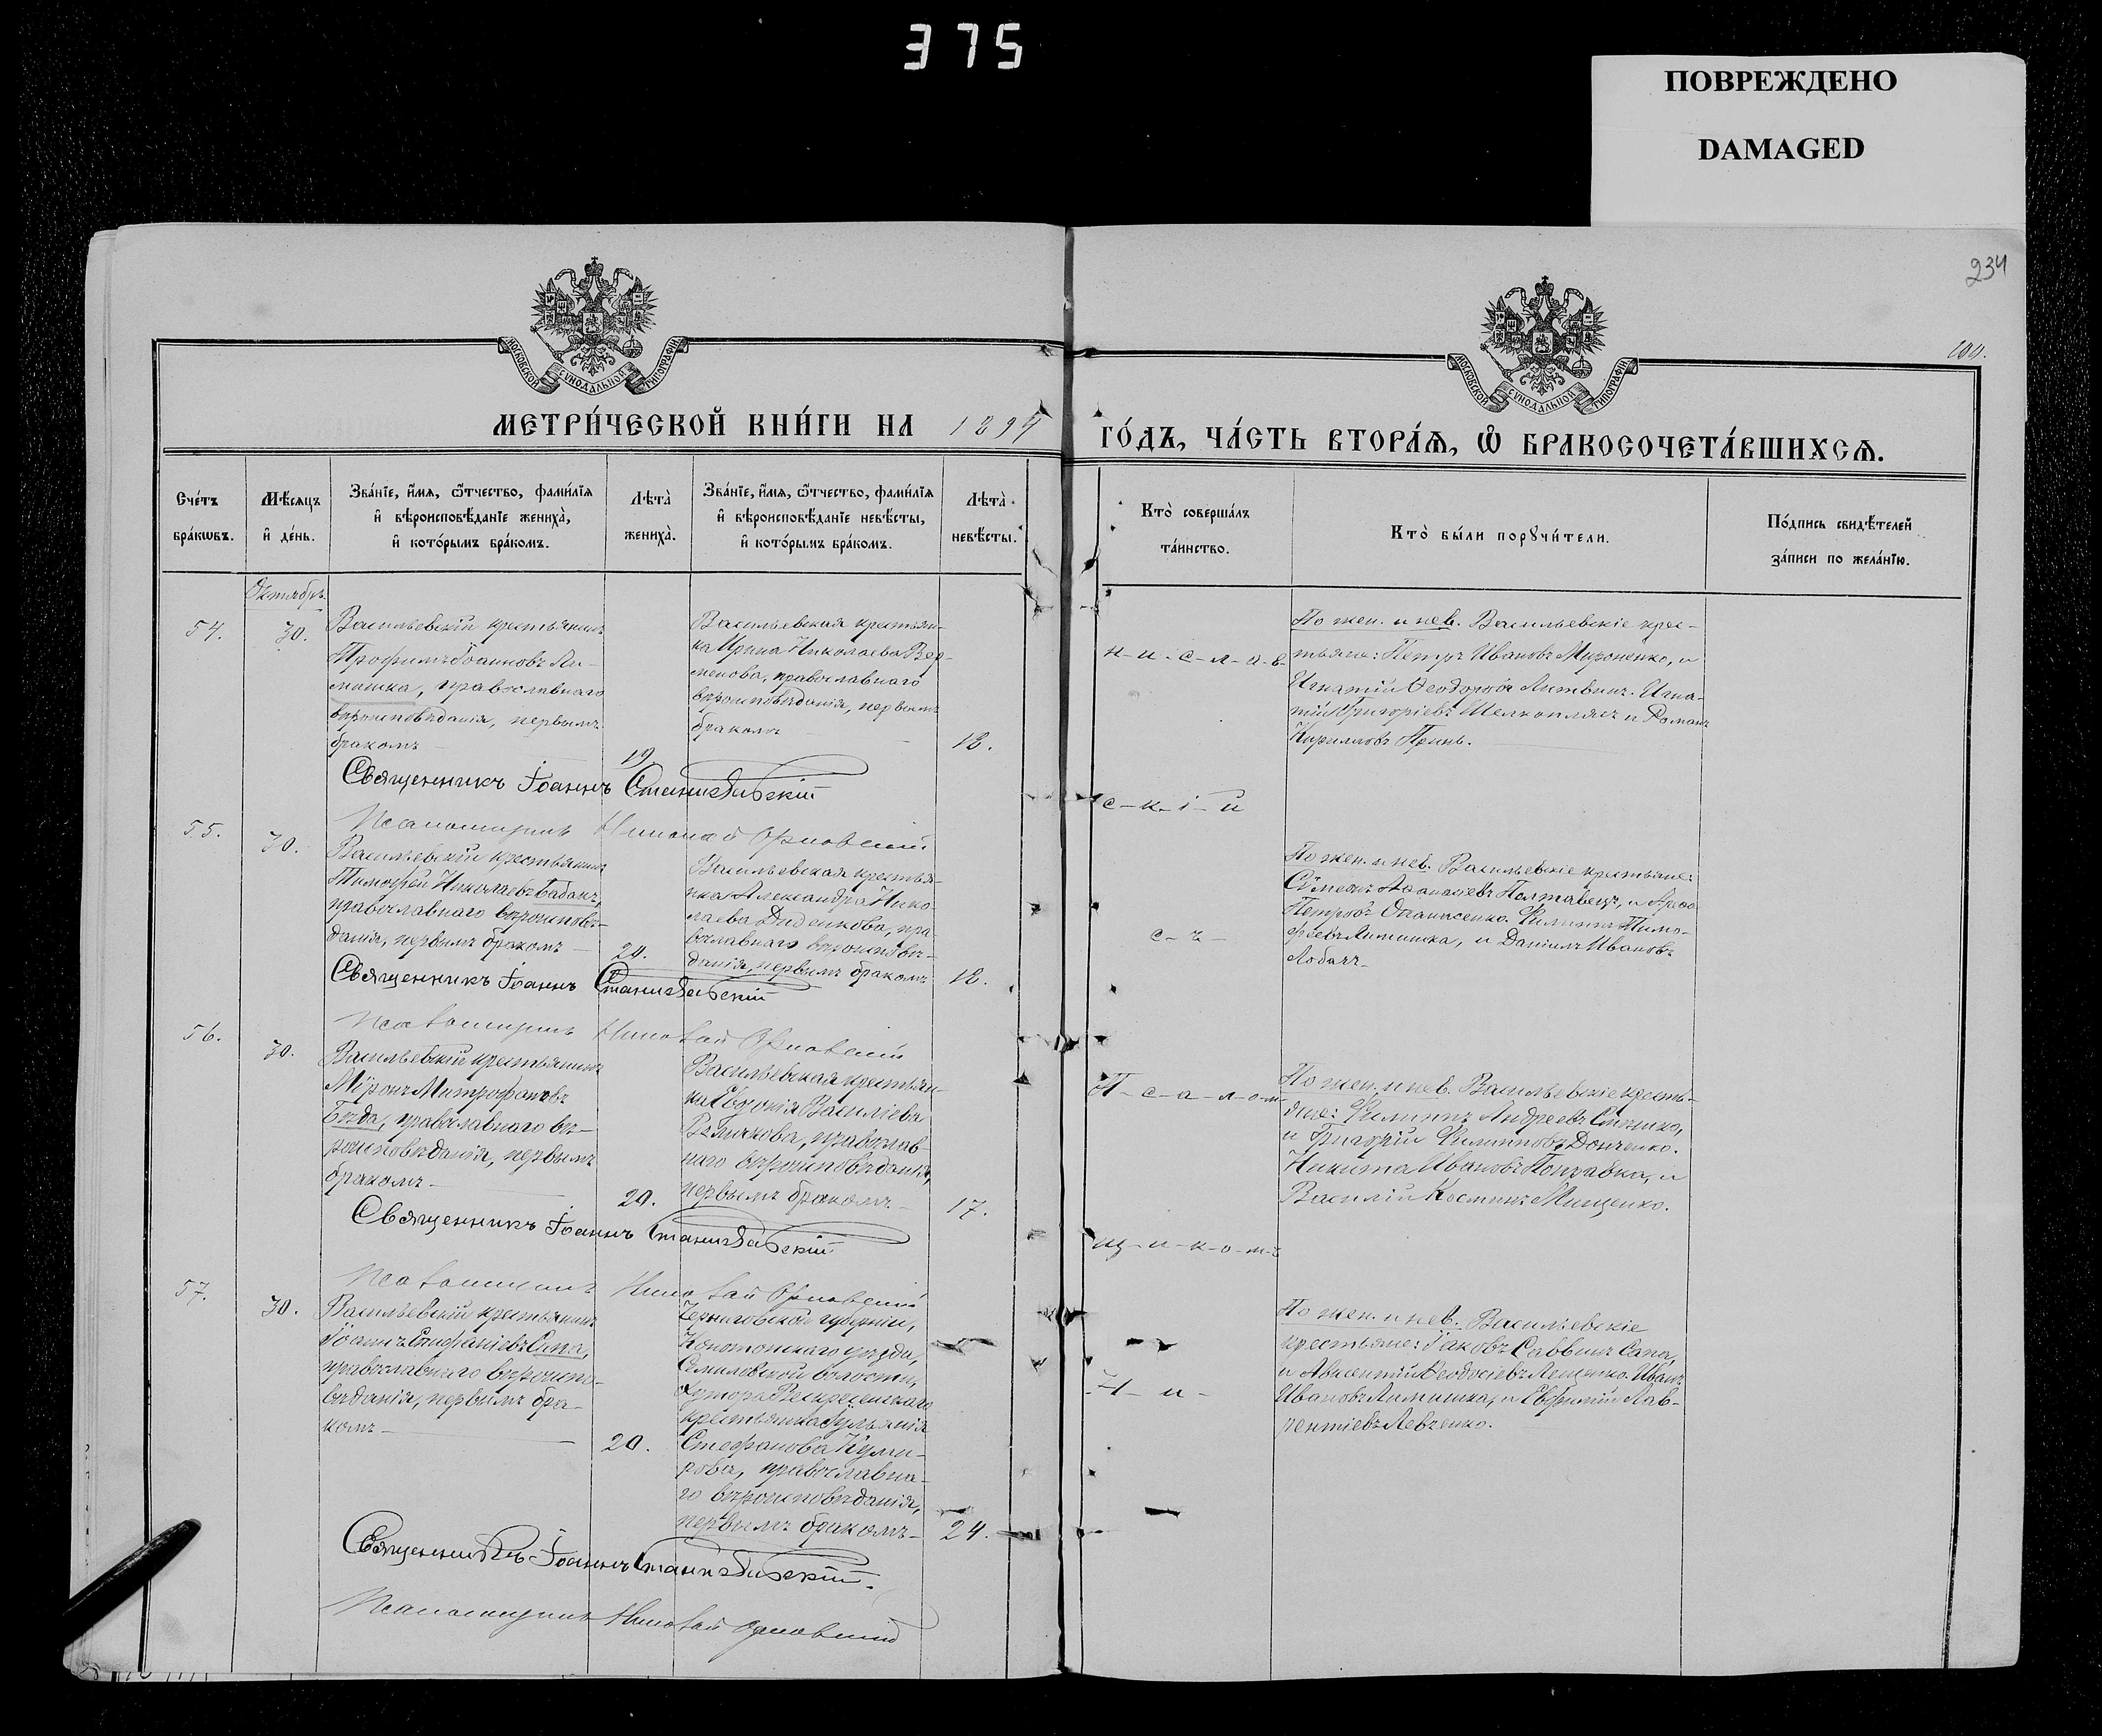 375
ПОВРЕЖДЕНО
DAMAGED
234
МОСКОВСКОЙ СУНОДАЛЬНОЙ ТИПОГРАФІИ
МОСКОВСКОЙ СУНОДАЛЬНОЙ ТИПОГРАФІИ
МЕТРИ́ЧЕСКОЙ КНИ́ГИ НА 1894
ГО́ДЪ, ЧА́СТЬ ВТОРА́Ѧ, Ѡ҆ БРАКОСОЧЕТА́ВШИХСѦ.
Сче́тъ
бра́кѡвъ.
Мѣ́сяцъ
и҆ де́нь.
Зва́нїе, и҆́мя, ѻ҆́тчество, фами́лїя
и҆ вѣроисповѣ́данїе жениха̀,
и҆ кото́рымъ бра́комъ.
Лѣта̀
жениха̀.
Зва́нїе, и҆́мя, ѻ҆́тчество, фами́лїя
и҆ вѣроисповѣ́данїе невѣ́сты,
и҆ кото́рымъ бра́комъ.
Лѣта̀
невѣ́сты.
Кто̀ соверша́лъ
та́инство.
Кто̀ бы́ли порꙋчи́тели.
По́дпись свидѣ́телей
за́писи по жела́нїю.
Октябрь.
54.
30.
Васильевскій крестьянинъ
Трофимъ Іоанновъ Ли-
мишка, православнаго
вѣроисповѣданія, первымъ
бракомъ
19
Васильевская крестьян-
ка Ирина Николаева Вер-
менова, православнаго
вѣроисповѣданія, первымъ
бракомъ
18.
н-и-с-л-а-в-
По жен. и нев. Васильевскіе крес-
тьяне: Петръ Ивановъ Мироненко, и
Игнатій Ѳеодоровъ Литвинъ. Игна-
тій Григоріевъ Шелкоплясъ и Романъ
Кирилловъ
Священникъ Іоаннъ Станиславскій
с-к-і-й
Псаломщикъ Николай Орловскій
55.
30.
Васильевскій крестьянинъ
Тимоѳей Николаевъ Бабакъ,
православнаго вѣроисповѣ-
данія, первымъ бракомъ
20.
Васильевская крестья-
нка Александра Нико-
лаева Диденкова, пра-
вославнаго вѣроисповѣ-
данія, первымъ бракомъ
18.
с-ъ-
По жен. и нев. Васильевскіе крестьяне:
Сѵмеонъ Аѳанасіевъ Полтавецъ, и
Петровъ Опанасенко. Филиппъ Тимо-
ѳеевъ Лимишка, и Даніилъ Ивановъ
Лобачъ
Священникъ Іоаннъ Станиславскій
Псаломщикъ Николай Орловскій
56.
30.
Васильевскій крестьянинъ
Мѵронъ Митрофановъ
Бѣда, православнаго вѣ-
роисповѣданія, первымъ
бракомъ
20.
Васильевская крестьян-
ка Евдокія Василіева
православ-
наго вѣроисповѣданія,
первымъ бракомъ
17.
П-с-а-л-о-м-
По жен. и нев. Васильевскіе кресть-
яне: Филиппъ Андреевъ
и Григорій Филипповъ Донченко.
Никита Ивановъ и
Василій Космичъ Мищенко.
Священникъ Іоаннъ Станиславскій
щ-и-к-о-м-ъ
Псаломщикъ Николай Орловскій
57.
30.
Васильевскій крестьянинъ
Іоаннъ Епифаніевъ Сапа,
православнаго вѣроиспо-
вѣданія, первымъ бра-
комъ
20.
Черниговской губерніи,
Конотопскаго уѣзда,
Смиловской волости,
хутора Воскресенскаго
крестьянка Іуліанія
Стефанова
православна-
го вѣроисповѣданія,
первымъ бракомъ
24.
Н-и-
По жен. и нев. Васильевскіе
крестьяне: Іаковъ Саввинъ Сапа,
и Авксентій Ѳеодосіевъ Лещенко. Иванъ
Ивановъ Лимишка, и Евѳимій Лав-
рентіевъ Левченко.
Священникъ Іоаннъ Станиславскій.
Псаломщикъ Николай Орловскій